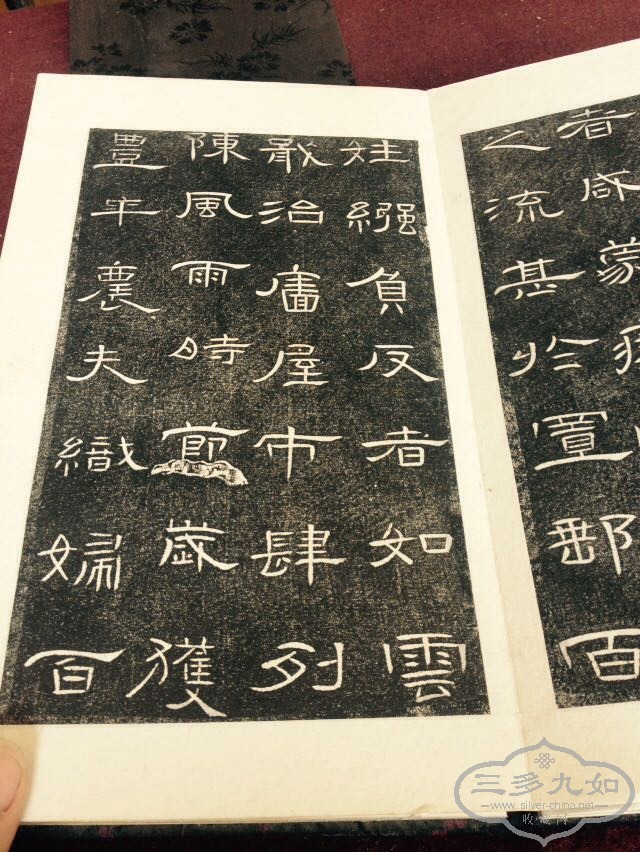 者咸蒙
之流甚於置郵百
姓繈負反者如雲
戢治廧屋市肆列
陳風雨時節歲獲
豐年農夫織婦百
三多九如
www.silver-china.net